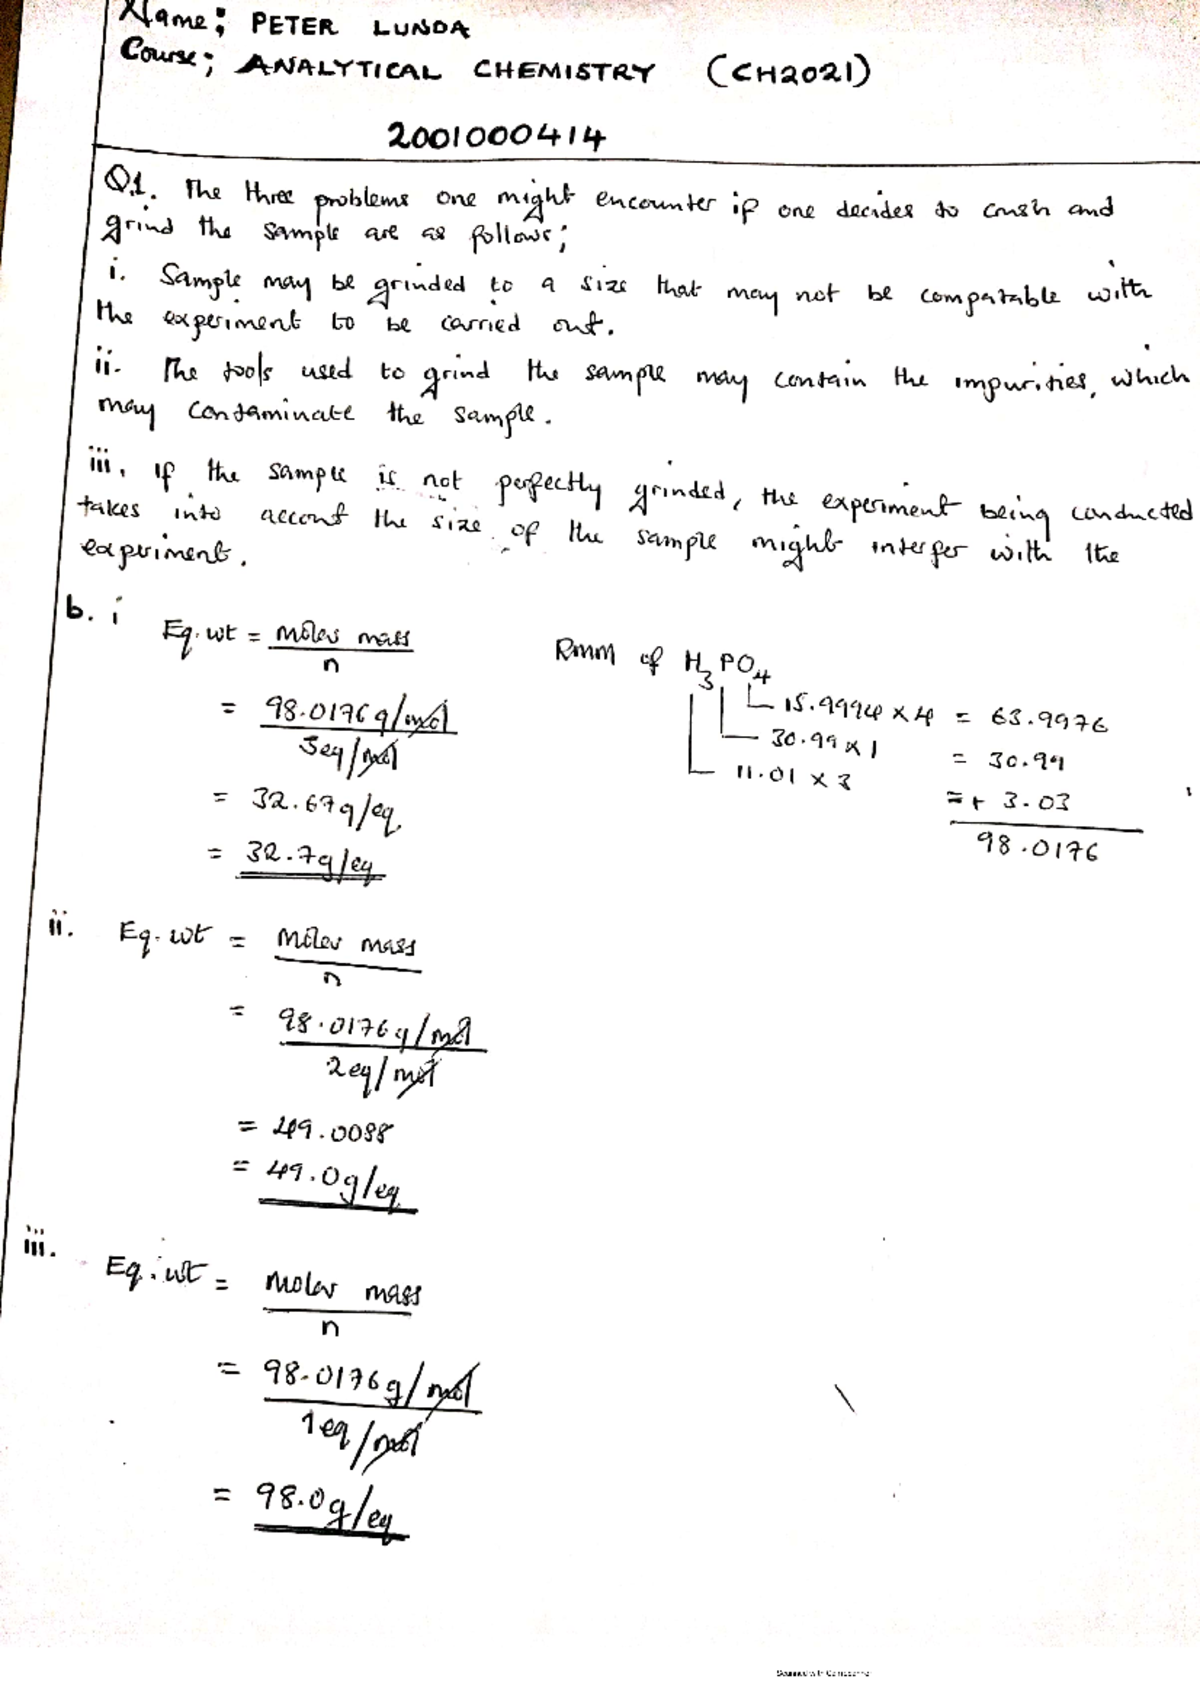 Name; PETER LUNDA
Course; ANALYTICAL CHEMISTRY (CH2021)
2001000414
Q1. The three problems one might encounter if one decides to crush and
grind the sample are as follows;
i. Sample may be grinded to a size that may not be compatable with
the experiment to be carried out.
ii. The tools used to grind the sample may contain the impurities, which
may contaminate the sample.
iii. If the sample is not perfectly grinded, the experiment being conducted
takes into accont the size of the sample might interfer with the
experiment.
b. i Eq. wt = molar mass / n
= 98.0176 g/mol / 3eq/mol
= 32.67g/eq
= 32.7g/eq
Rmm of H3PO4
15.9994 x 4 = 63.9976
30.99 x 1 = 30.99
11.01 x 3 = + 3.03
98.0176
ii. Eq. wt = molar mass / n
= 98.0176g/mol / 2eq/mol
= 49.0088
= 49.0g/eq
iii. Eq. wt = molar mass / n
= 98.0176g/mol / 1eq/mol
= 98.0g/eq